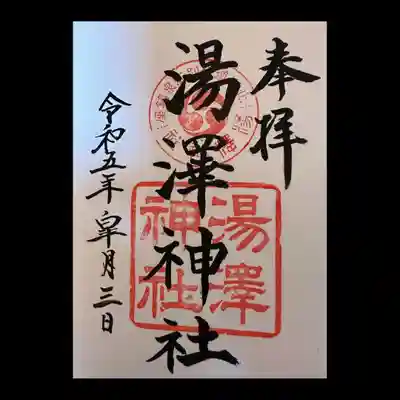 奉拝
湯澤神社
湯澤
神社
令和五年皐月三日